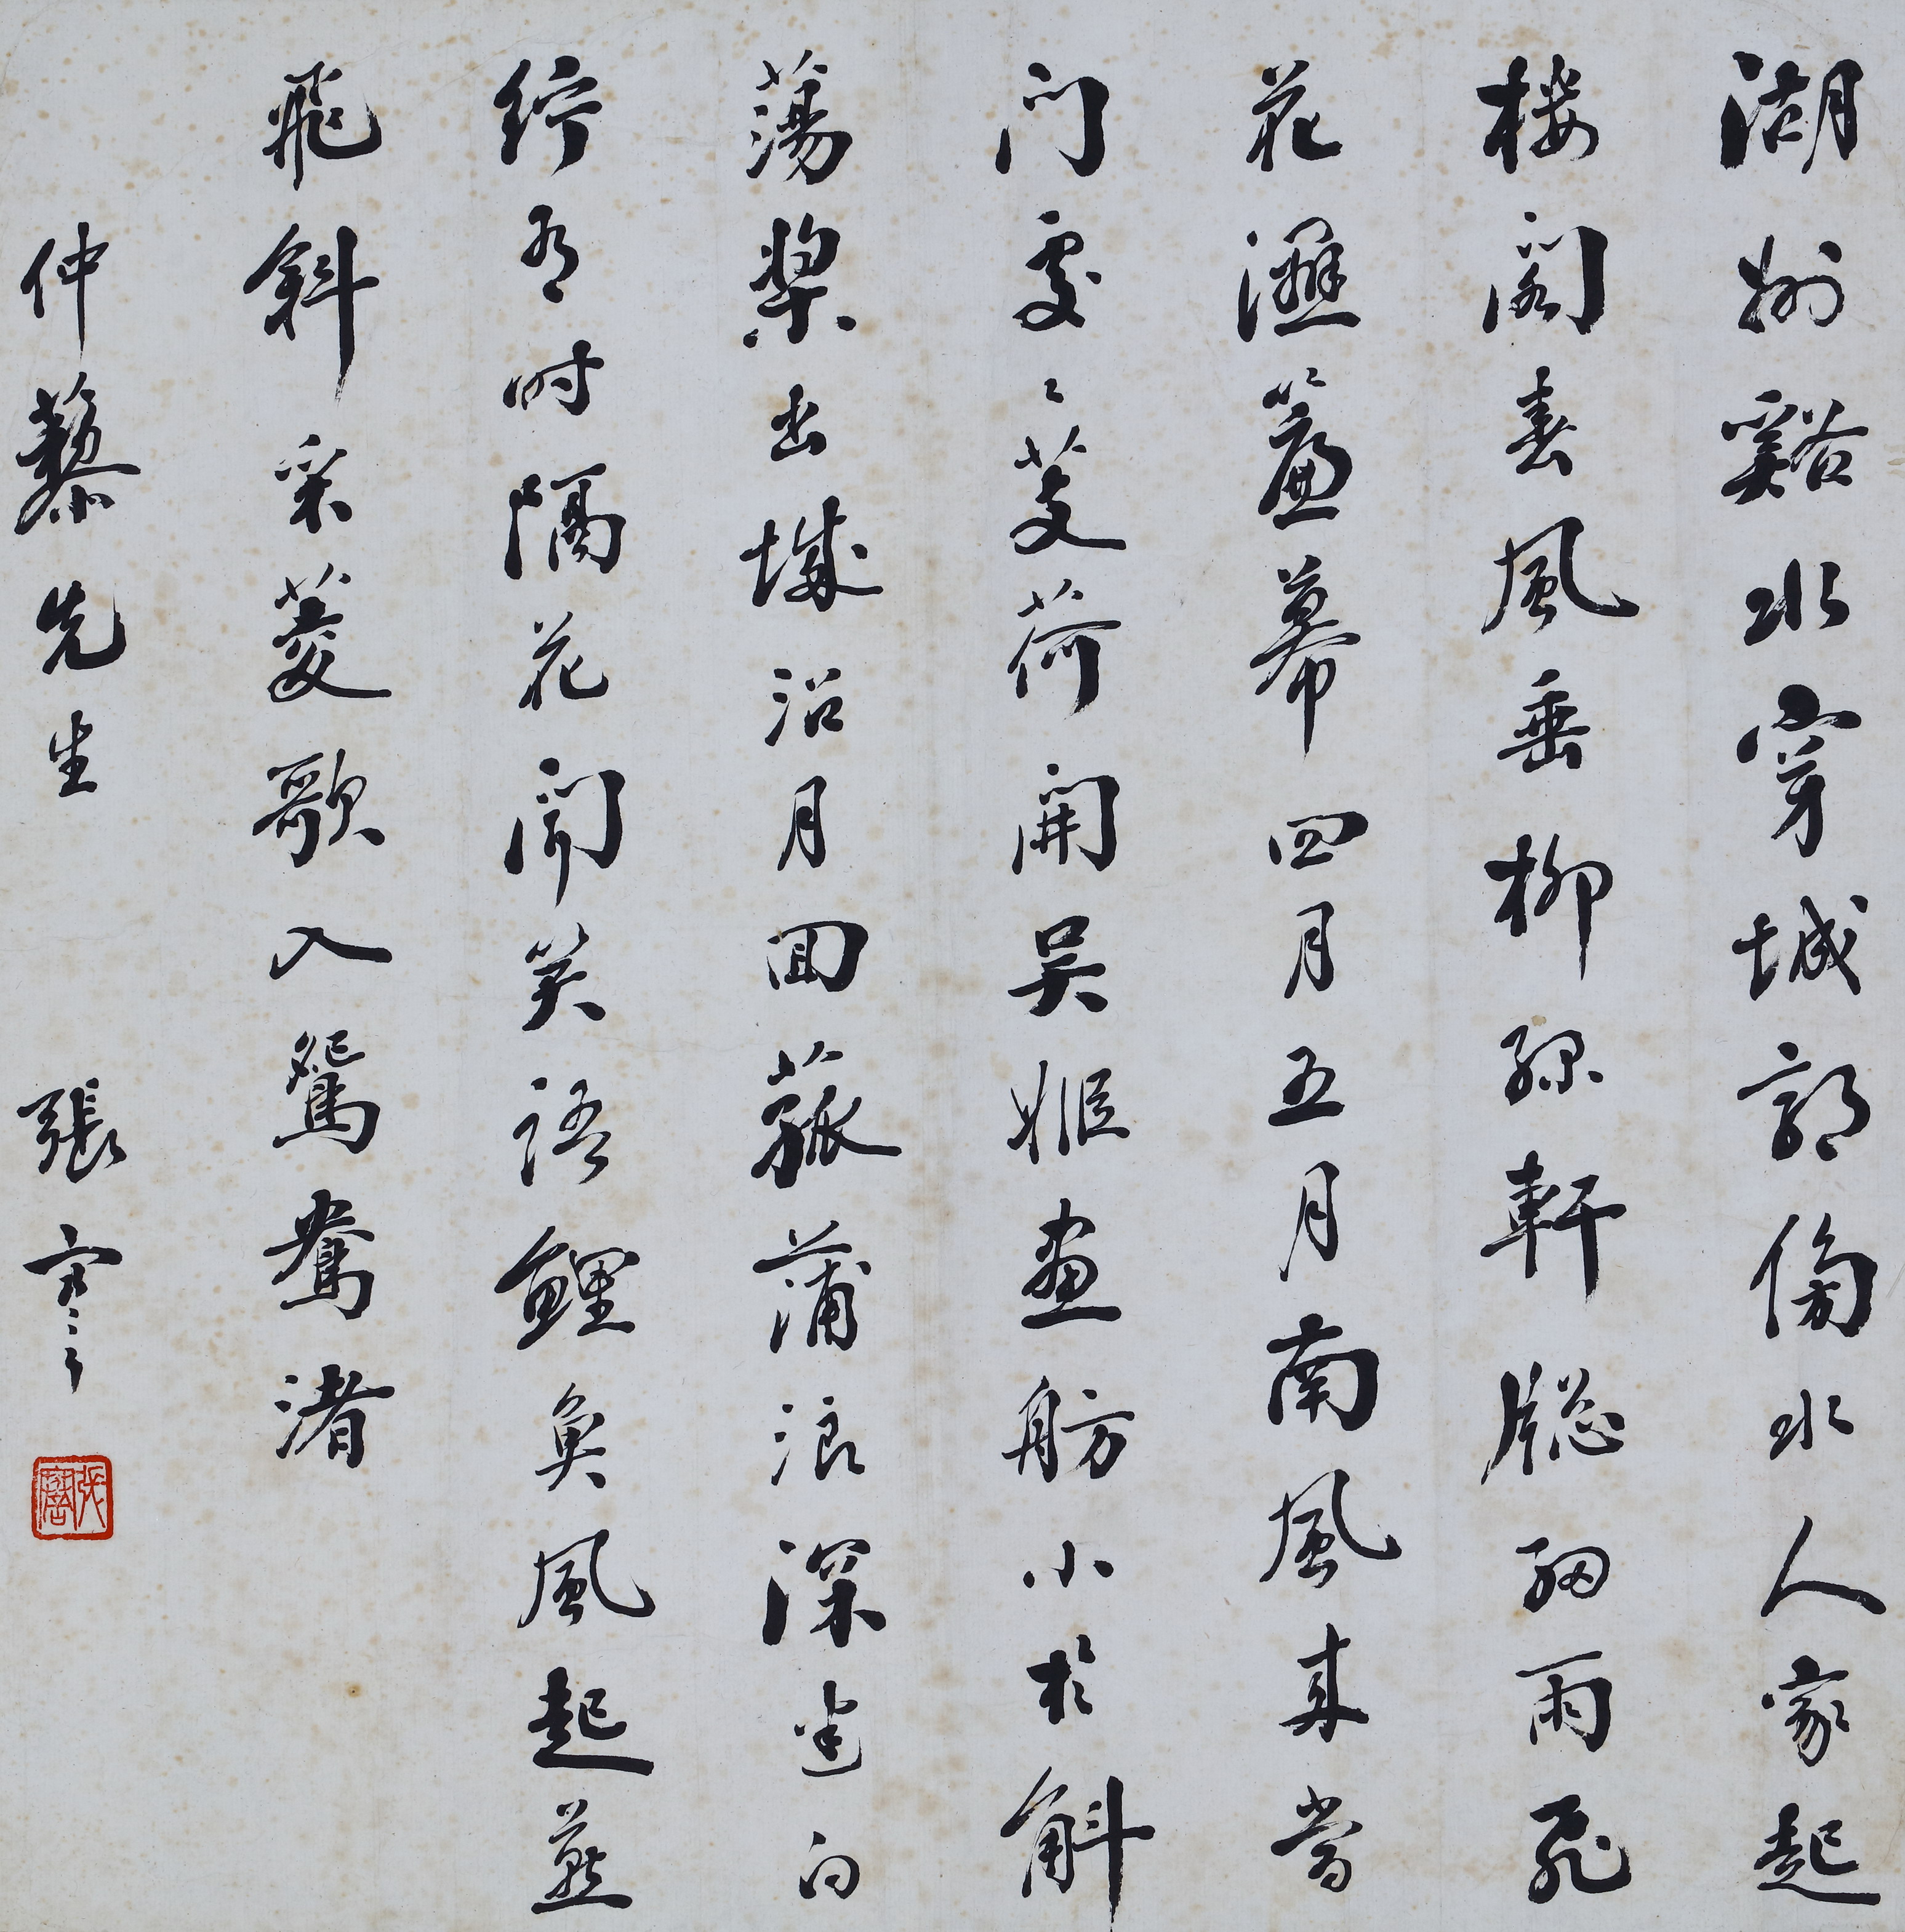 湖州谿水穿城郭傍水人家起
樓閣春風垂柳綠軒牕細雨飛
花濕簾幕四月五月南風來當
門處〻芰荷開吳姬畫舫小於斛
蕩槳出城沿月回菰蒲浪深迷白
紵有時隔花聞笑語鯉魚風起燕
飛斜采菱歌入鴛鴦渚
仲藜先生 張謇
張謇